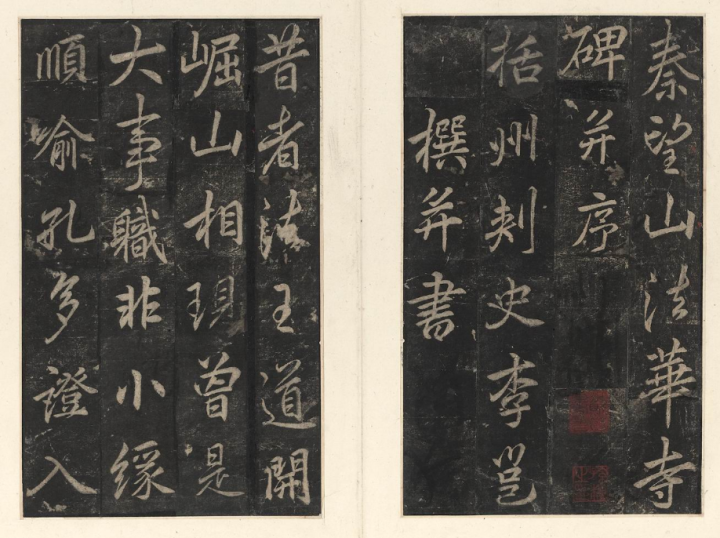 秦望山法華寺
碑并序
括州刺史李邕
撰并書
昔者法王道開
崛山相現曾是
大事職非小緣
順喻孔多證入